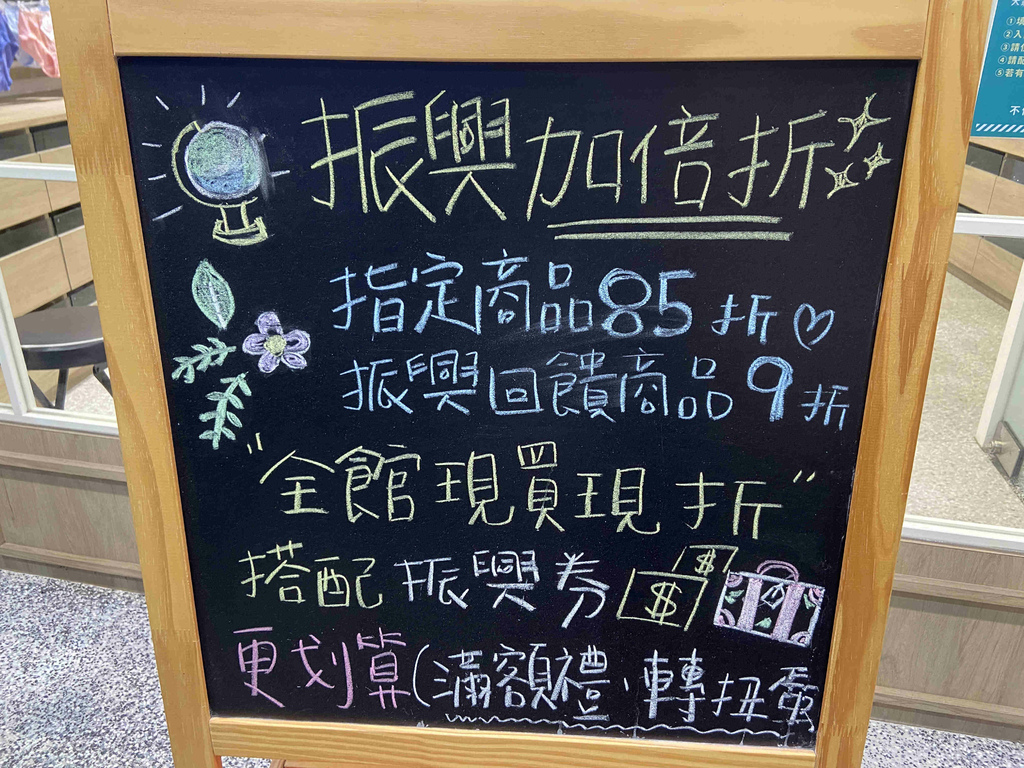 振興加倍折
指定商品85折
振興回饋商品9折
"全館現買現折"
搭配振興券 $ $
更划算(滿額禮、轉扭蛋
①填
②入
③請
④請配
⑤若有
不